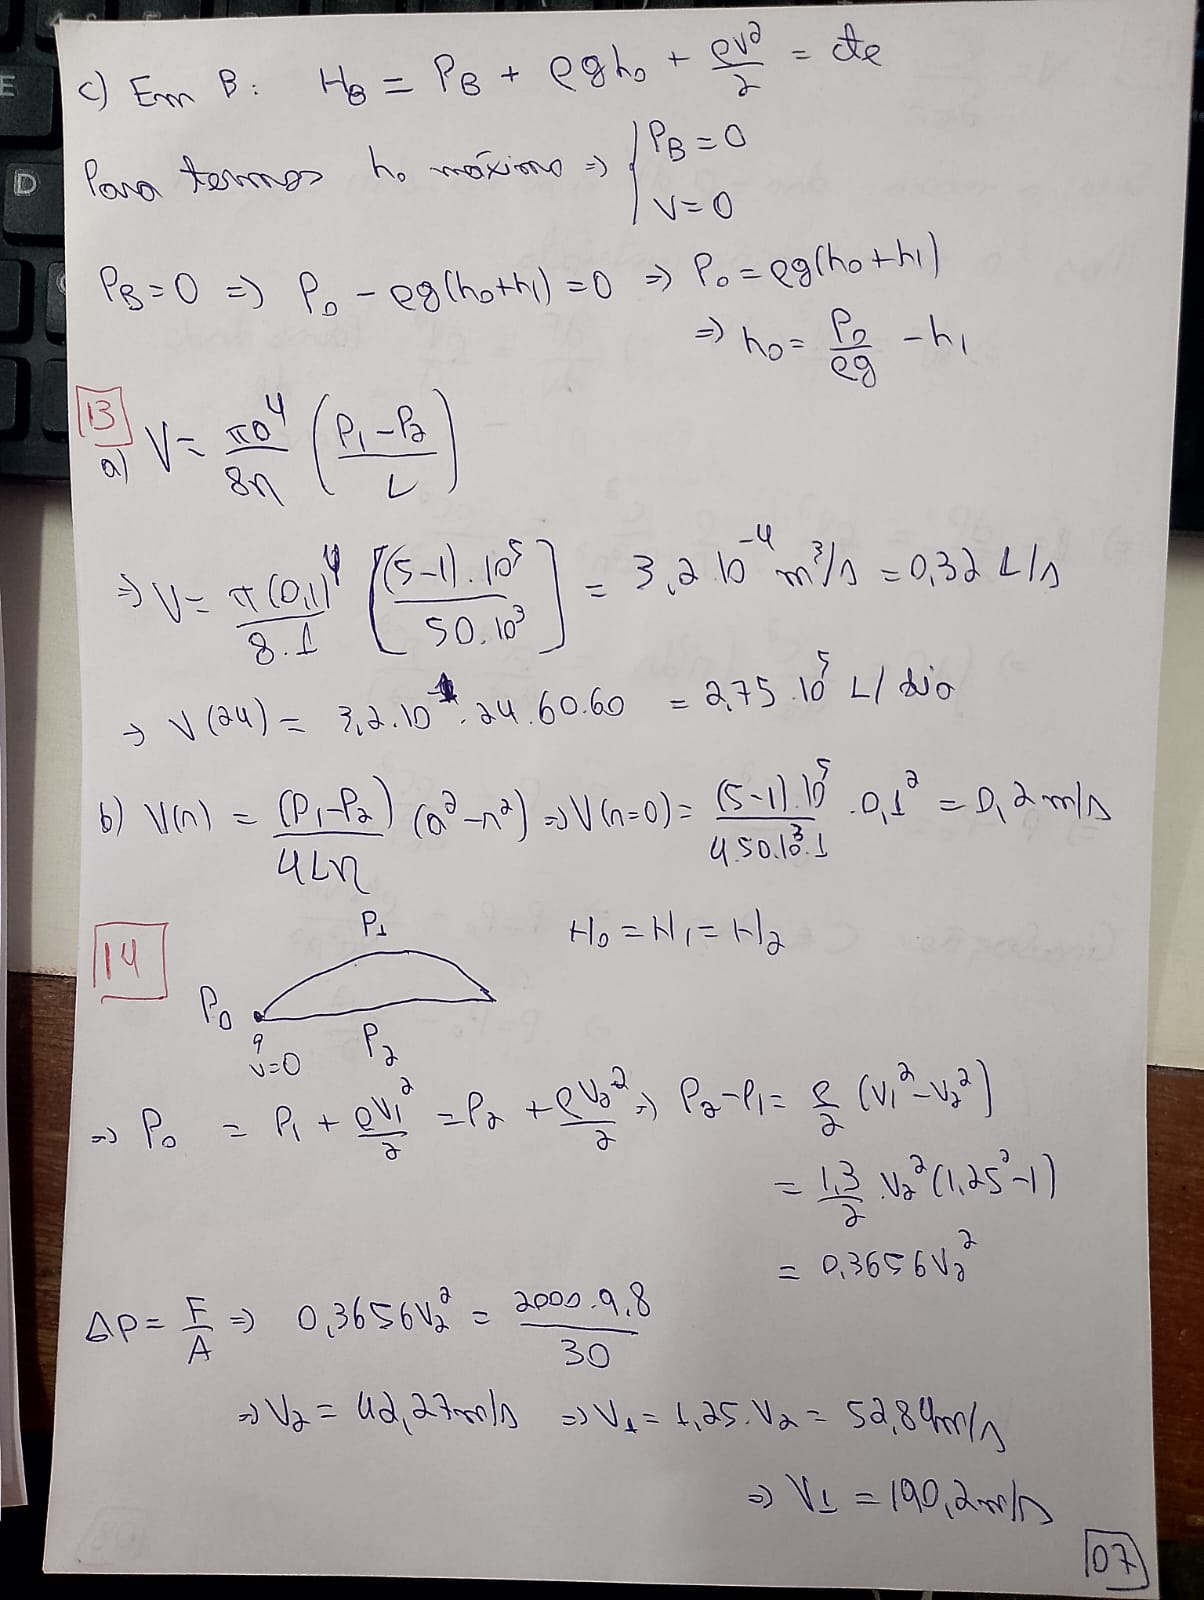 c) Em B: H_B = P_B + ρgh₀ + ρv²/2 = cte
Para termos h₀ máximo ⇒ { P_B = 0
V = 0
P_B = 0 ⇒ P₀ - ρg(h₀+h₁) = 0 ⇒ P₀ = ρg(h₀+h₁)
⇒ h₀ = P₀/ρg - h₁
13
a) V = πa⁴/8η (P₁-P₂/L)
⇒ V = π(0,1)⁴/8.1 [(5-1).10⁵/50.10³] = 3,2.10⁻⁴ m³/s = 0,32 L/s
→ V(24) = 3,2.10⁻¹.24.60.60 = 2,75.10⁵ L/dia
b) V(r) = (P₁-P₂)/4Lη (a²-r²) ⇒ V(r=0) = (5-1).10⁵/4.50.10³.1 .0,1² = 0,2 m/s
14
P₁
H₀ = H₁ = H₂
P₀
P₂
v=0
⇒ P₀ = P₁ + ρV₁²/2 = P₂ + ρV₂²/2 ⇒ P₂-P₁ = ρ/2 (V₁²-V₂²)
= 1,3/2 .V₂²(1,25²-1)
= 0,3656V₂²
ΔP = F/A ⇒ 0,3656V₂² = 2000.9,8/30
⇒ V₂ = 42,27m/s ⇒ V₁ = 1,25.V₂ = 52,84m/s
⇒ V₁ = 190,2m/s
07